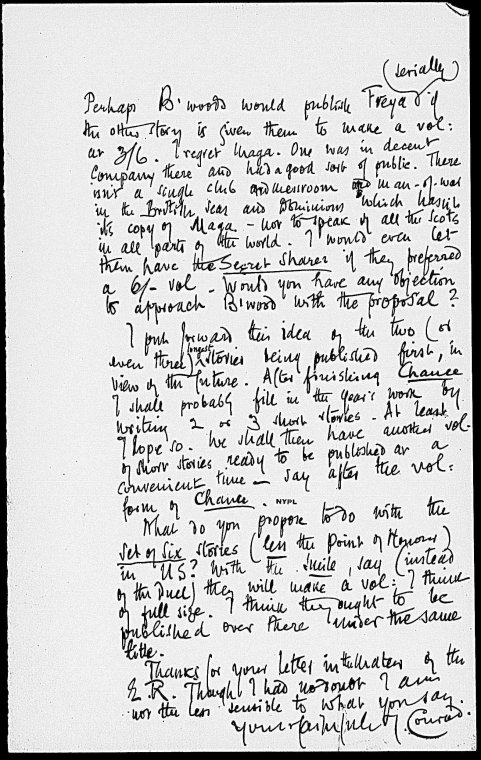 (serially)
Perhaps B'woods would publish Freya if
the other story is given them to make a vol:
at 3/6. I regret Maga. One was in decent
company there and had a good sort of public. There
isn't a single club and messroom and man-of-war
in the British Seas and Dominions which hasn't
its copy of Maga - not to speak of all the Scots
in all parts of the world. I would even let
them have the Secret Sharer if they preferred
a 6/- vol - Would you have any objection
to approach B'wood with the proposal?
I put forward this idea of the two (or
even three) longest stories being published first, in
view of the future. After finishing Chance
I shall probably fill in the year's work by
writing 2 or 3 short stories. At least
I hope so. We shall then have another vol.
of short stories ready to be published at a
convenient time - say after the vol:
form of Chance.
NYPL
What do you propose to do with the
Set of Six stories (less the Point of Honour)
in US? With the Smile, say (instead
of the Duel) they will make a vol: I think
of full size. I think they ought to be
published over there under the same
title.
Thanks for your letter in the matter of the
E.R. Though I had no doubt I am
not the less sensible to what you say.
Yours faithfully J. Conrad.